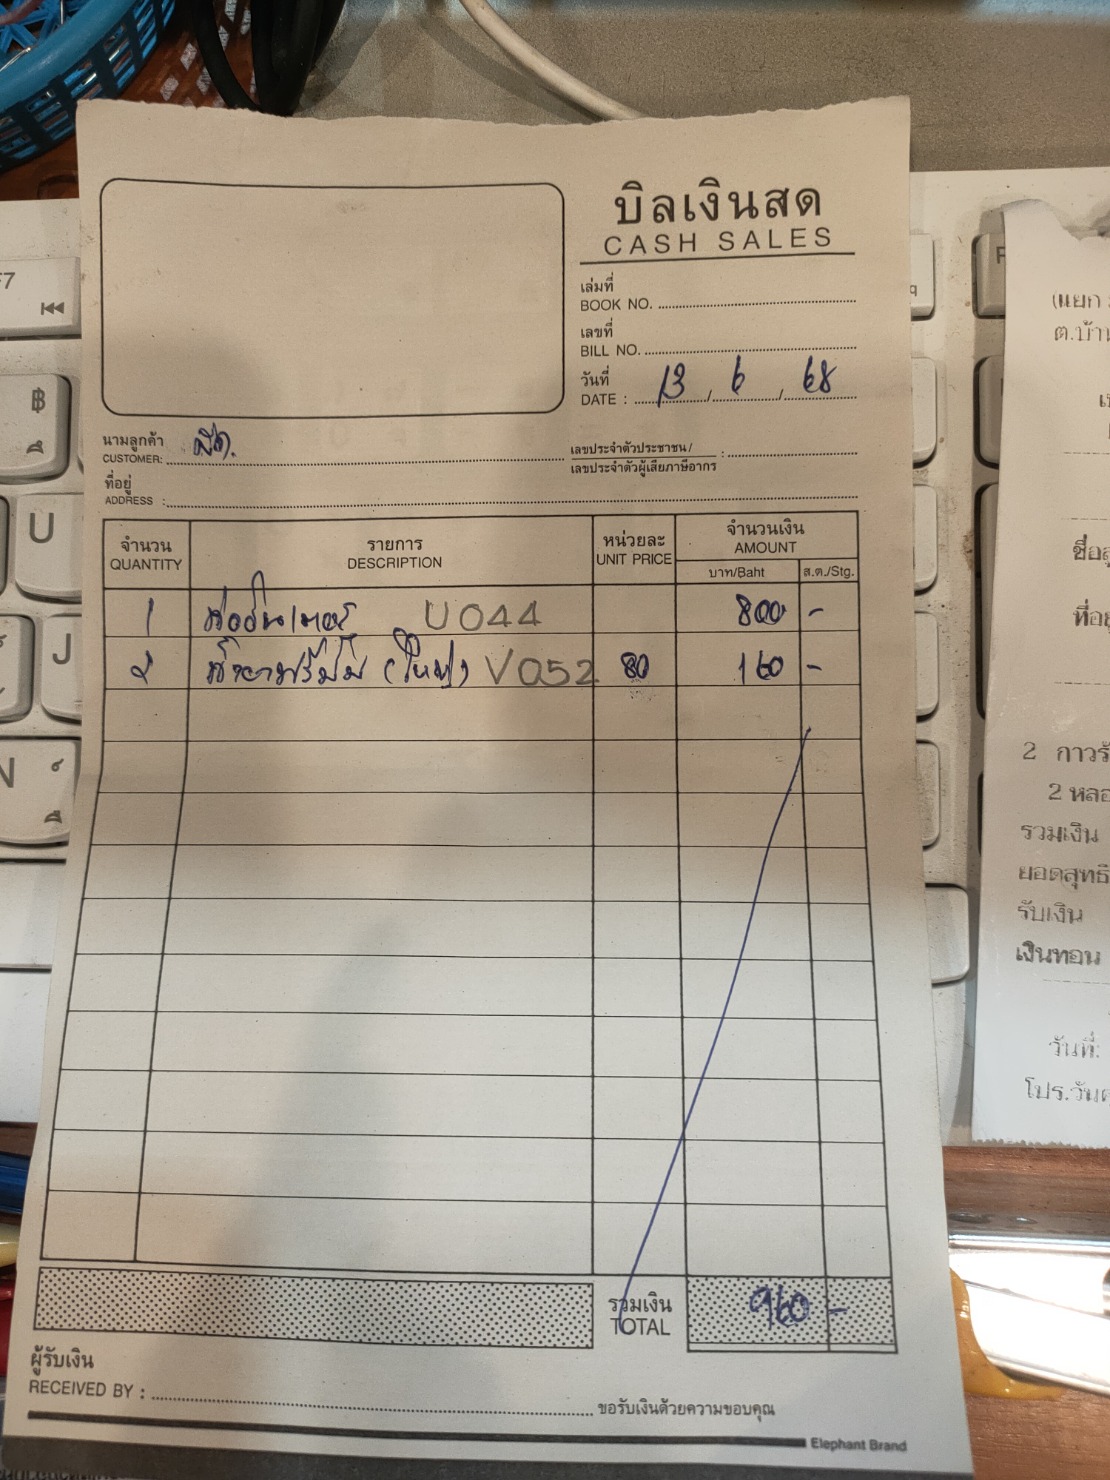 บิลเงินสด
CASH SALES
เล่มที่
BOOK NO.
เลขที่
BILL NO.
วันที่
DATE : 13 / 6 / 68
นามลูกค้า
CUSTOMER:
เลขประจำตัวประชาชน/
เลขประจำตัวผู้เสียภาษีอากร :
ที่อยู่
ADDRESS :
จำนวน รายการ หน่วยละ จำนวนเงิน
QUANTITY DESCRIPTION UNIT PRICE AMOUNT
บาท/Baht ส.ต./Stg.
1 U044 800 -
2 (ใหญ่) V052 80 160 -
รวมเงิน
TOTAL 960 -
ผู้รับเงิน
RECEIVED BY :
ขอรับเงินด้วยความขอบคุณ
Elephant Brand
F7
฿
U
J
N
(แยก
ต.บ้าน
ที่อยู่
2 กาว
2 หลอ
รวมเงิน
ยอดสุทธิ
รับเงิน
เงินทอน
วันที่:
โปร.วัน